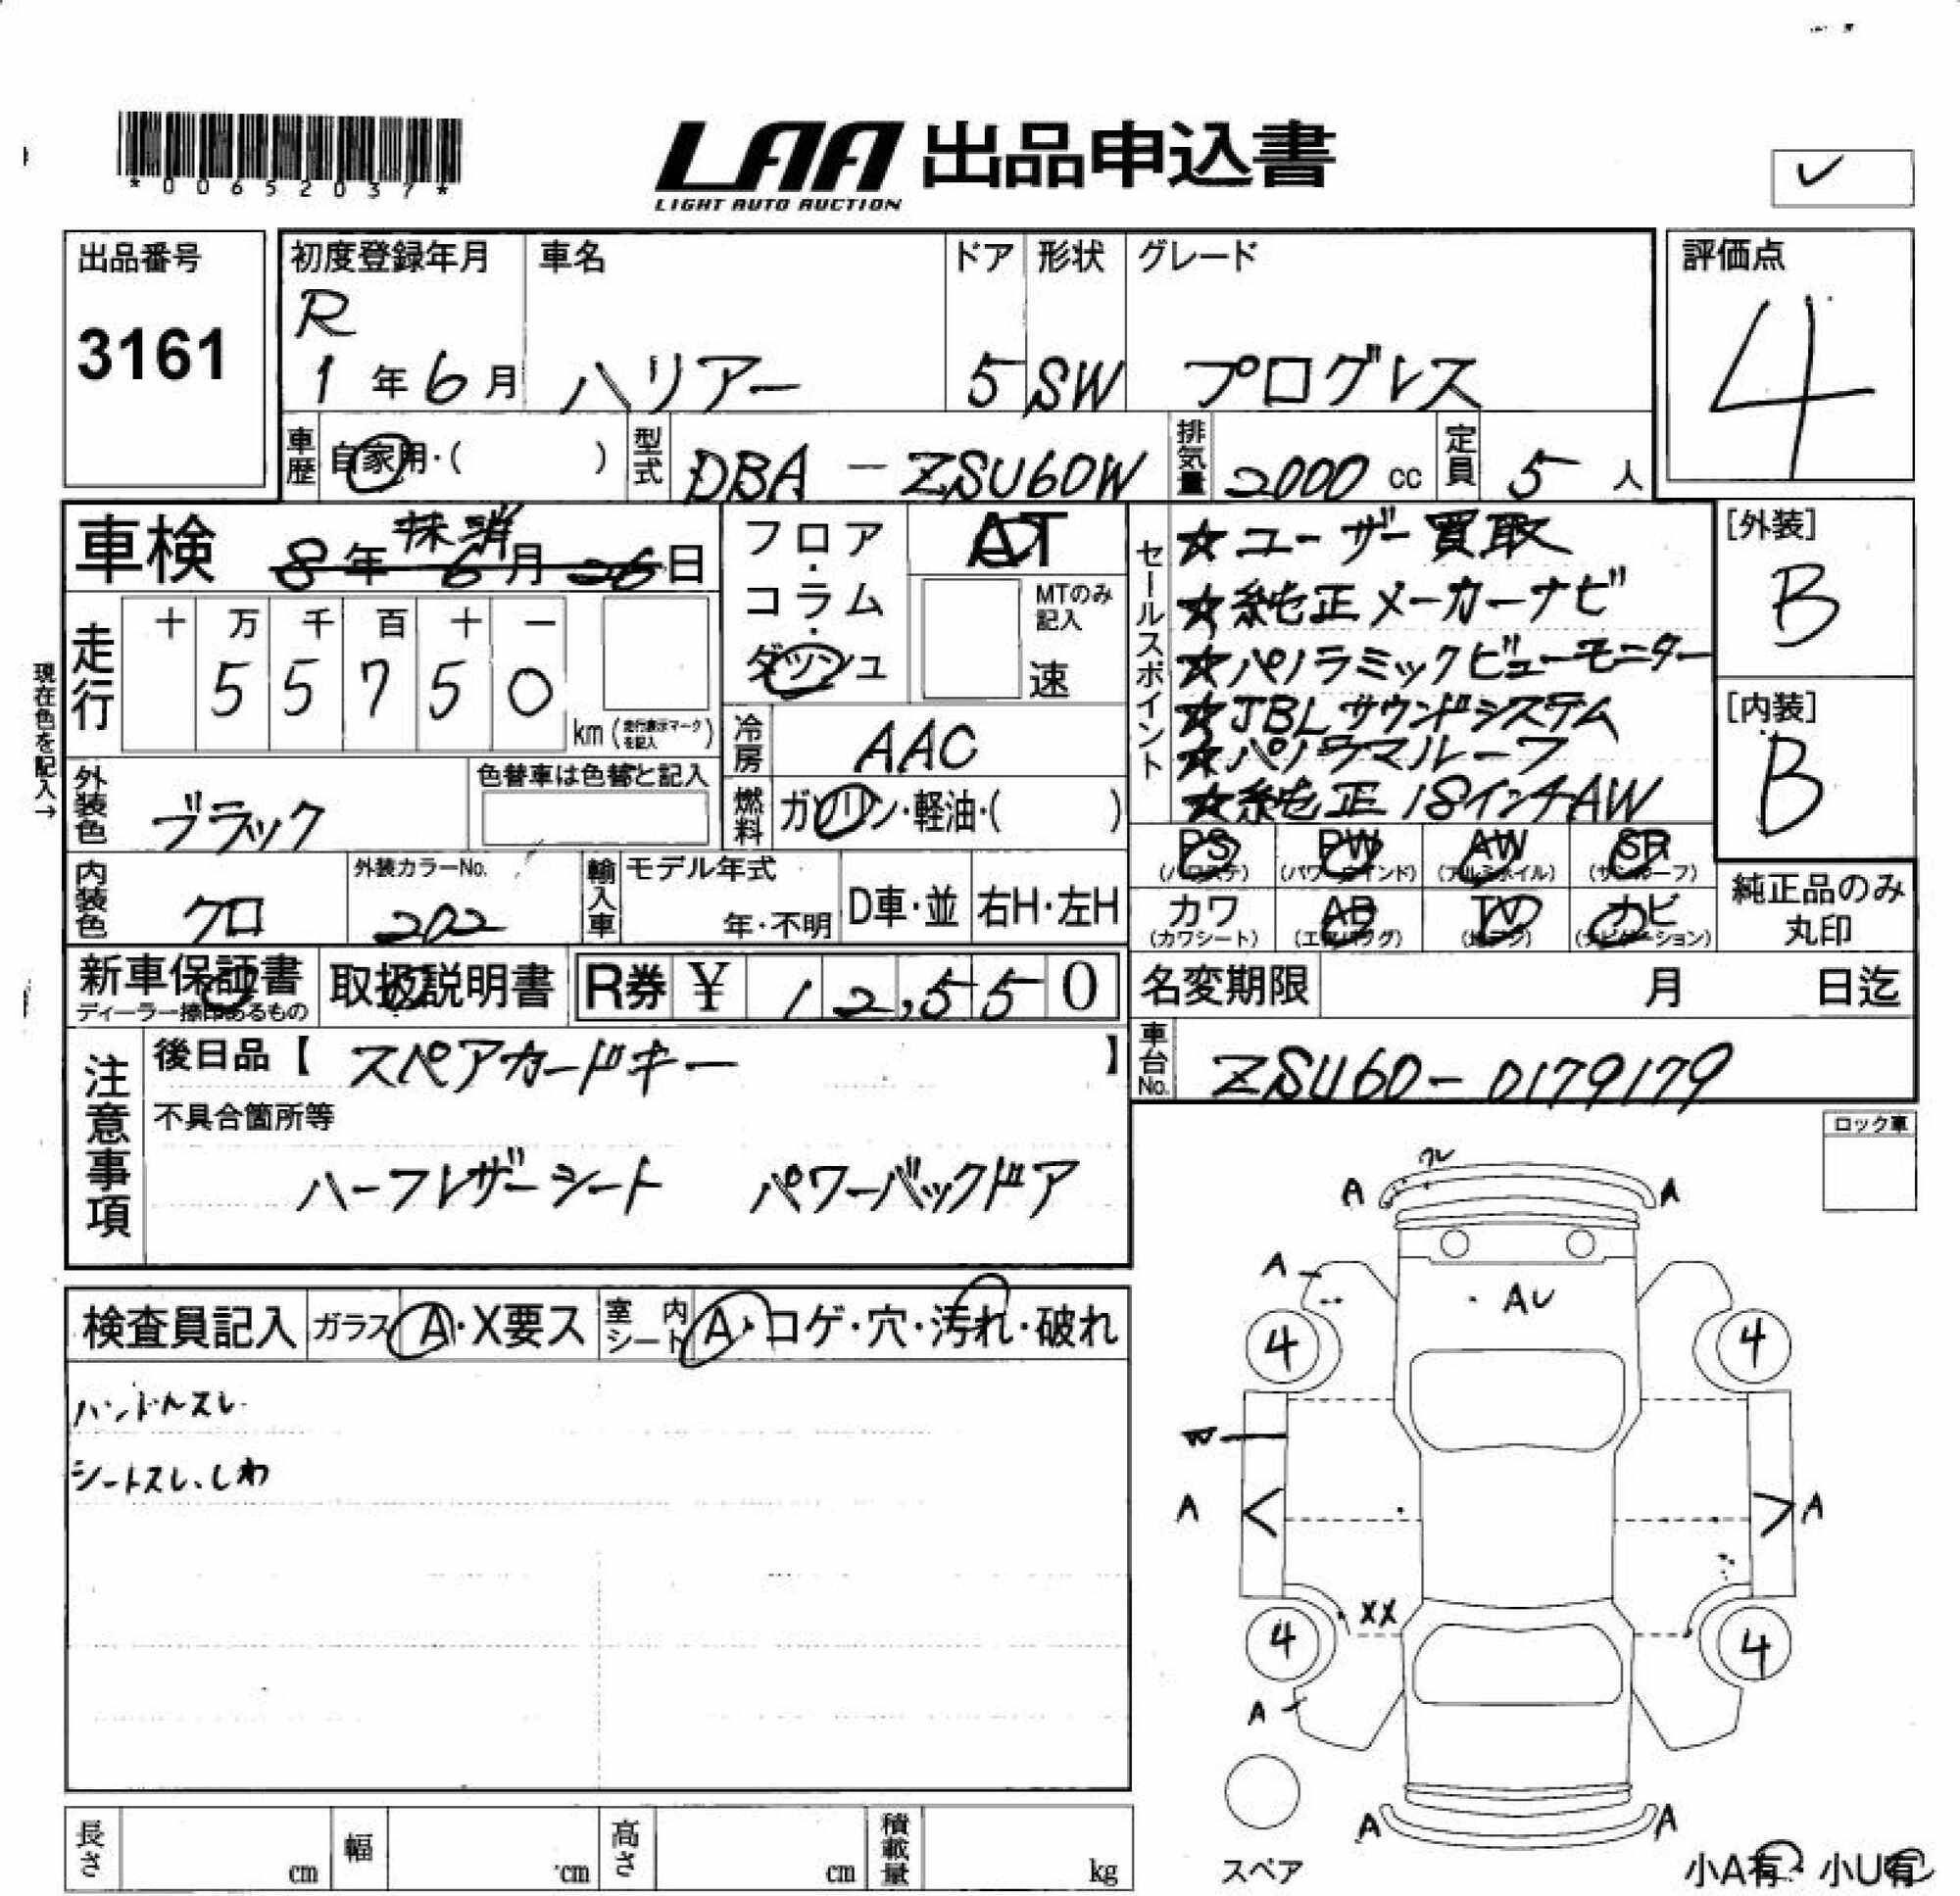 *00652037*
LAA 出品申込書
LIGHT AUTO AUCTION
✓
出品番号
3161
初度登録年月
R
1年6月
車名
ハリアー
ドア
5
形状
SW
グレード
プログレス
評価点
4
車歴 自家用・( )
型式 DBA-ZSU60W
排気量 2000 cc
定員 5 人
車検 8年6月26日
抹消
フロア・コラム・ダッシュ
AT
MTのみ記入
速
セールスポイント
☆ユーザー買取
☆純正メーカーナビ
☆パノラミックビューモニター
☆JBLサウンドシステム
☆パノラマルーフ
☆純正18インチAW
[外装]
B
[内装]
B
現在色を記入→
走行
十 万 千 百 十 一
5 5 7 5 0
km (走行表示マークを記入)
冷房 AAC
燃料 ガソリン・軽油・( )
外装色 ブラック
色替車は色替と記入
内装色 クロ
外装カラーNo.
202
輸入車
モデル年式
年・不明
D車・並
右H・左H
PS (パワステ)
PW (パワーウインド)
AW (アルミホイル)
SR (サンルーフ)
カワ (カワシート)
AB (エアバッグ)
TV (地デジ)
ナビ (ナビゲーション)
純正品のみ丸印
新車保証書
ディーラー捺印あるもの
取扱説明書
R券 ¥ 12,550
名変期限 月 日迄
車台No. ZSU60-0179179
注意事項
後日品【 スペアカードキー 】
不具合箇所等
ハーフレザーシート パワーバックドア
ロック車
検査員記入
ガラス A・X要ス
室内シート A・コゲ・穴・汚れ・破れ
ハンドルスレ
シートスレ、しわ
A
A
A
AU
4
4
A
A
XX
4
4
A
A
A
スペア
小A有・小U有
長さ cm
幅 cm
高さ cm
積載量 kg